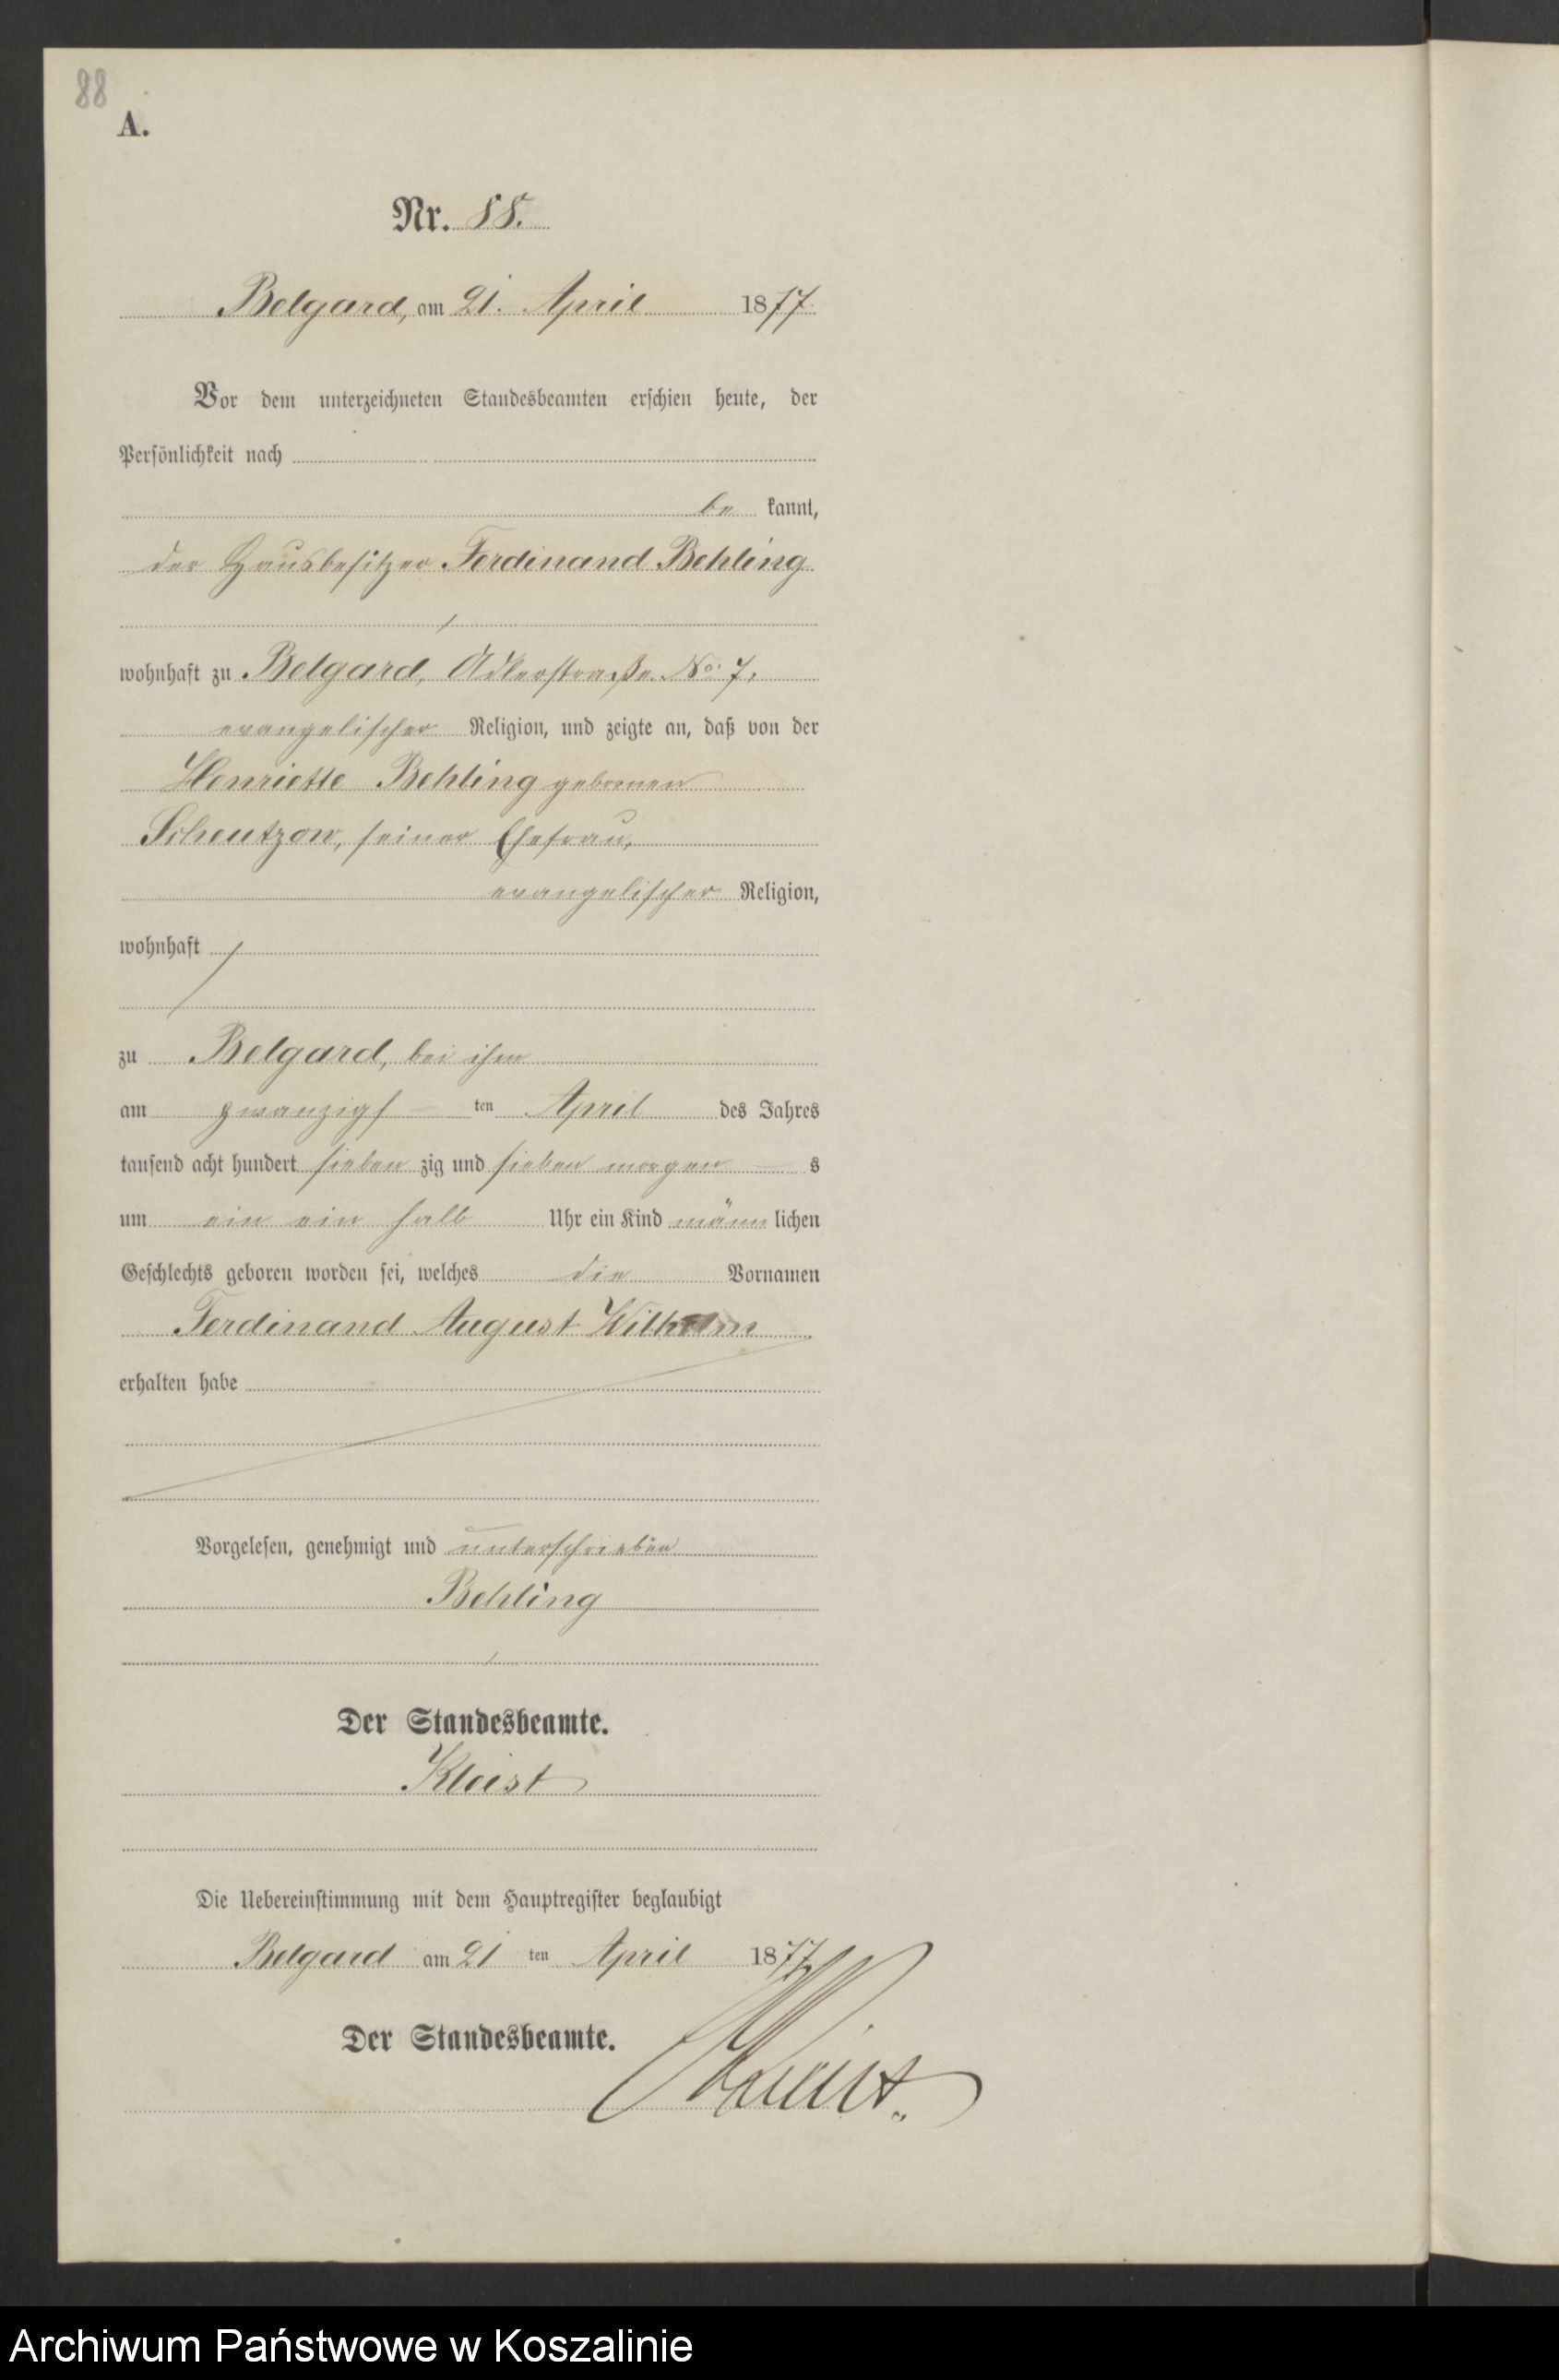 88
A.
Nr. 88.
Belgard, am 21. April 1877.
Vor dem unterzeichneten Standesbeamten erschien heute, der
Persönlichkeit nach
be kannt,
der Hausbesitzer Ferdinand Behling
wohnhaft zu Belgard, Adlerstraße No. 7,
evangelischer Religion, und zeigte an, daß von der
Henriette Behling geborenen
Scheutzow, seiner Ehefrau,
evangelischer Religion,
wohnhaft
zu Belgard, bei ihm
am zwanzigs ten April des Jahres
tausend acht hundert sieben zig und sieben morgen s
um ein ein halb Uhr ein Kind männ lichen
Geschlechts geboren worden sei, welches die Vornamen
Ferdinand August Wilhelm
erhalten habe
Vorgelesen, genehmigt und unterschrieben
Behling
Der Standesbeamte.
Kleist
Die Uebereinstimmung mit dem Hauptregister beglaubigt
Belgard am 21 ten April 1877
Der Standesbeamte.
Kleist.
Archiwum Państwowe w Koszalinie